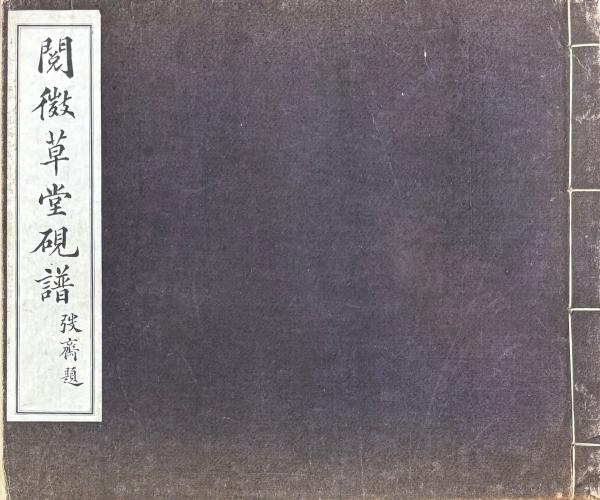 閱微草堂硯譜
弢齋題